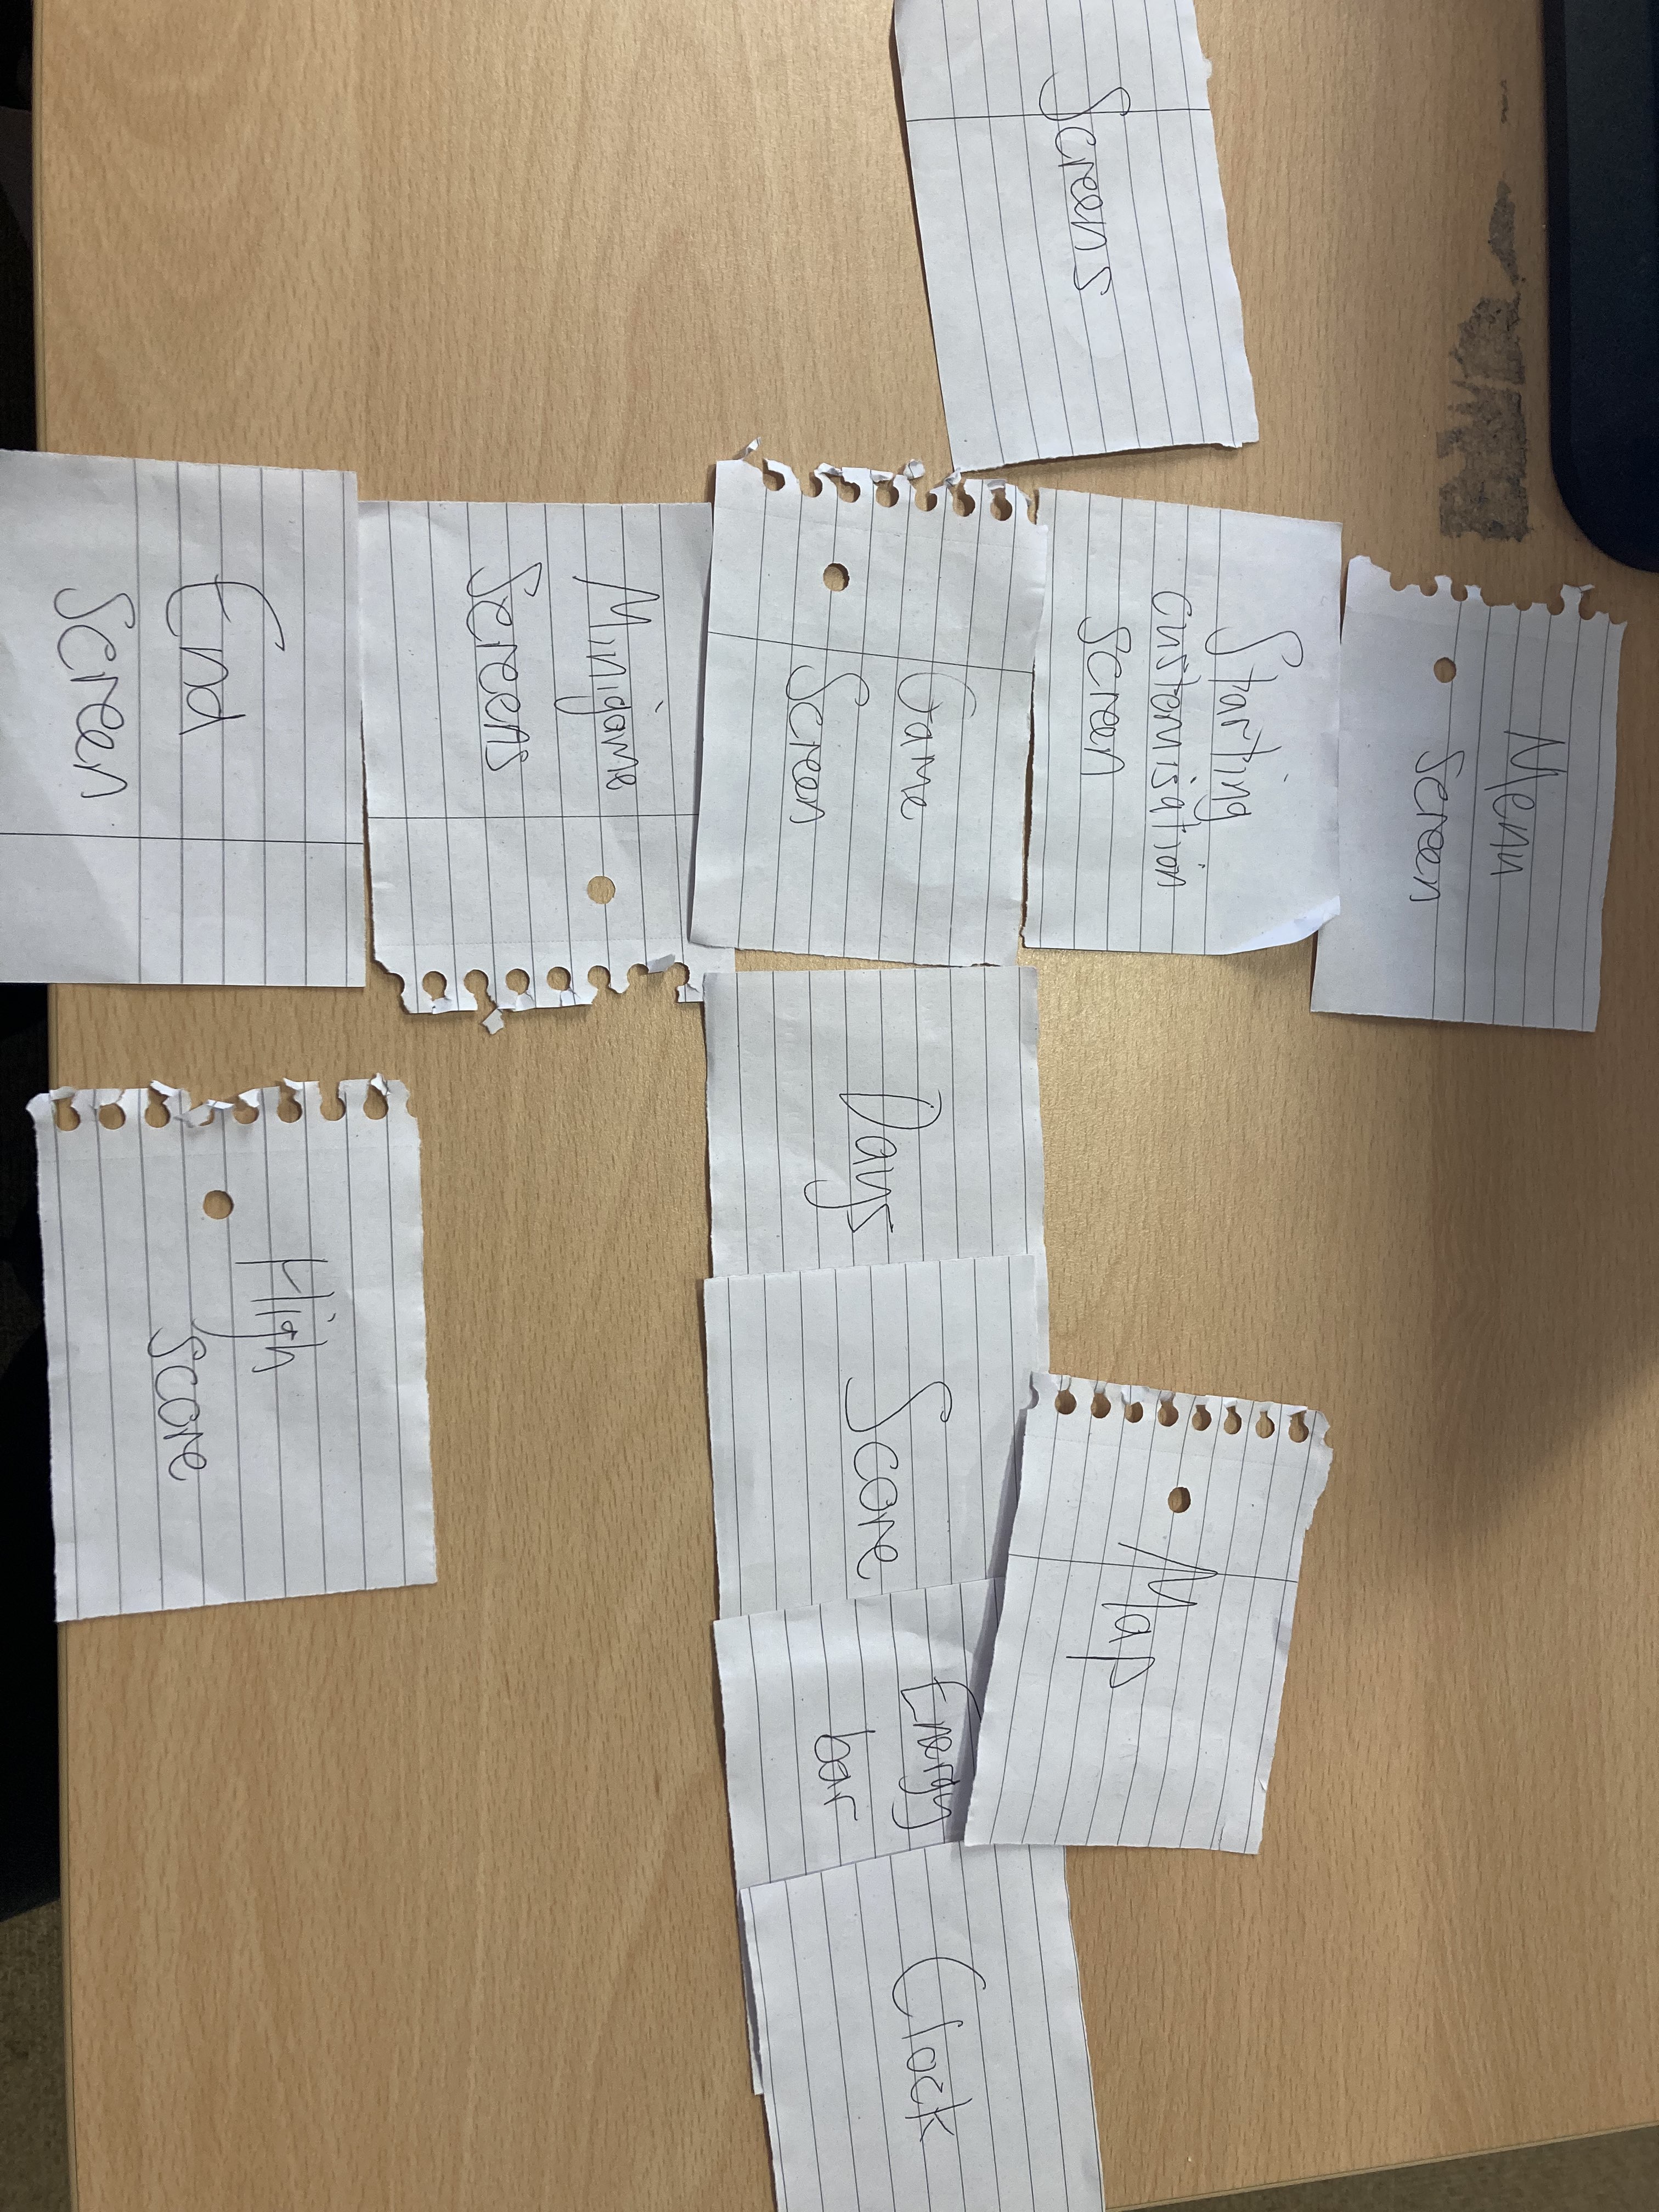 Menu
Screen
Starting
customisation
screen
Screens
Map
Game
Screen
Days
Score
Energy
bar
Clock
Minigame
Screens
End
Screen
High
score